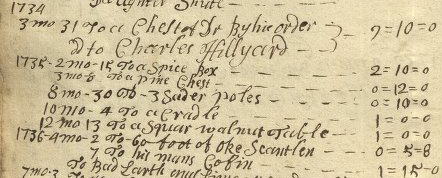 1734
3 mo 31 To a Chest of Dr by his order
dd to Charles Hillyard — 9=10=0
1735-2 mo-15 To a Spice Box — 2=10=0
3 mo-8 To a pine Chest — 0=12=0
8 mo-30 To -3 Sader poles — 0=10=0
10 mo-4 To a Cradle — 1=0=0
12 mo 13 To a Squar walnut Table — 1=0=0
1736-4 mo-2 To 60 foot of oke Scantlen — 0=5=8
7 To his mans Cofin — 1=15=0
7 mo-3 To Bad Earth